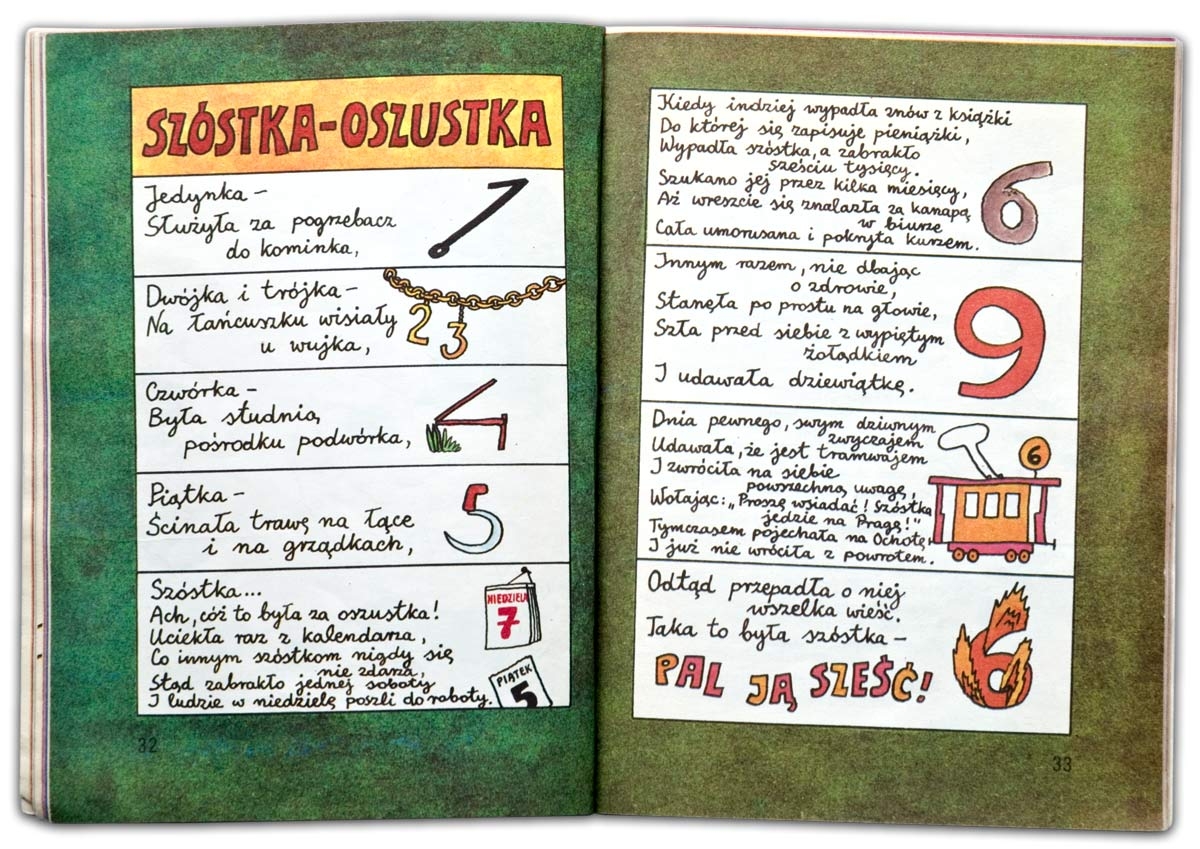 SZÓSTKA-OSZUSTKA
Jedynka –
Służyła za pogrzebacz
do kominka,
1
Dwójka i trójka –
Na łańcuszku wisiały
u wujka,
2 3
Czwórka –
Była studnią
pośrodku podwórka,
4
Piątka –
Ścinała trawę na łące
i na grządkach,
5
Szóstka...
Ach, cóż to była za oszustka!
Uciekła raz z kalendarza,
Co innym szóstkom nigdy się
nie zdarza,
Stąd zabrakło jednej soboty
I ludzie w niedzielę poszli do roboty.
NIEDZIELA
7
PIĄTEK
5
32
Kiedy indziej wypadła znów z książki
Do której się zapisuje pieniążki,
Wypadła szóstka, a zabrakło
sześciu tysięcy.
Szukano jej przez kilka miesięcy,
Aż wreszcie się znalazła za kanapą
w biurze
Cała umorusana i pokryta kurzem.
6
Innym razem, nie dbając
o zdrowie,
Stanęła po prostu na głowie,
Szła przed siebie z wypiętym
żołądkiem
I udawała dziewiątkę.
9
Dnia pewnego, swym dziwnym
zwyczajem
Udawała, że jest tramwajem
I zwróciła na siebie
powszechną uwagę,
Wołając: „Proszę wsiadać! Szóstka
jedzie na Pragę!"
Tymczasem pojechała na Ochotę
I już nie wróciła z powrotem.
6
Odtąd przepadła o niej
wszelka wieść.
Taka to była szóstka –
PAL JĄ SZEŚĆ!
6
33